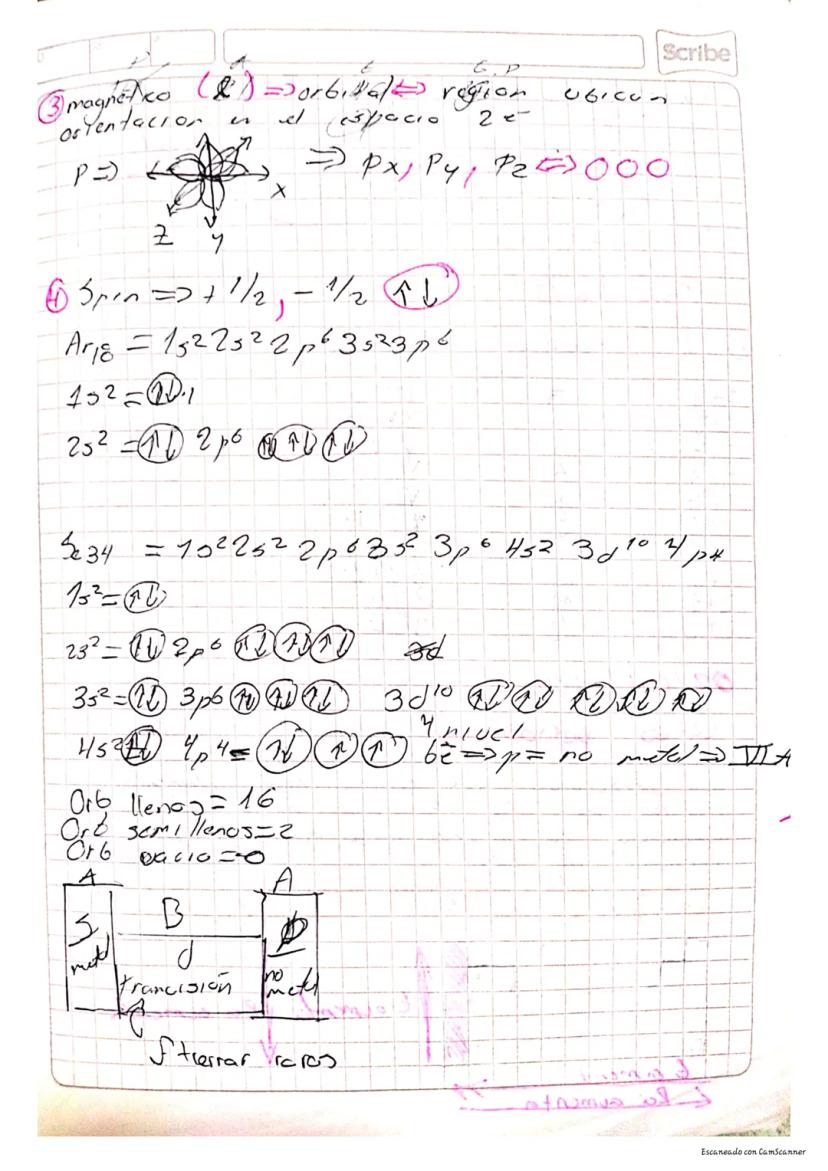 Scribe
③ magnético (l) ⇒ orbital ⇔ región ubican
orientacion en el espacio 2e⁻
P ⇒ ⇒ Px, Py, Pz ⇔ OOO
X
Z Y
④ Spin ⇒ + 1/2, - 1/2 ↑↓
Ar18 = 1s² 2s² 2p⁶ 3s² 3p⁶
1s² = ↑↓
2s² = ↑↓ 2p⁶ ↑↓ ↑↓ ↑↓
Se34 = 1s² 2s² 2p⁶ 3s² 3p⁶ 4s2 3d¹⁰ 4p4
1s² = ↑↓
2s² = ↑↓ 2p⁶ ↑↓ ↑↓ ↑↓ 3d
3s² = ↑↓ 3p6 ↑↓ ↑↓ ↑↓ 3d¹⁰ ↑↓ ↑↓ ↑↓ ↑↓ ↑↓
4 nivel
4s² ↑↓ 4p4 = ↑↓ ↑ ↑ 6e⁻ ⇒ p = no metal ⇒ VI A
Orb llenos = 16
Orb semillenos = 2
Orb vacio = 0
A A
S B P
metal d no
trancisión metal
f tierrar raras
Escaneado con CamScanner